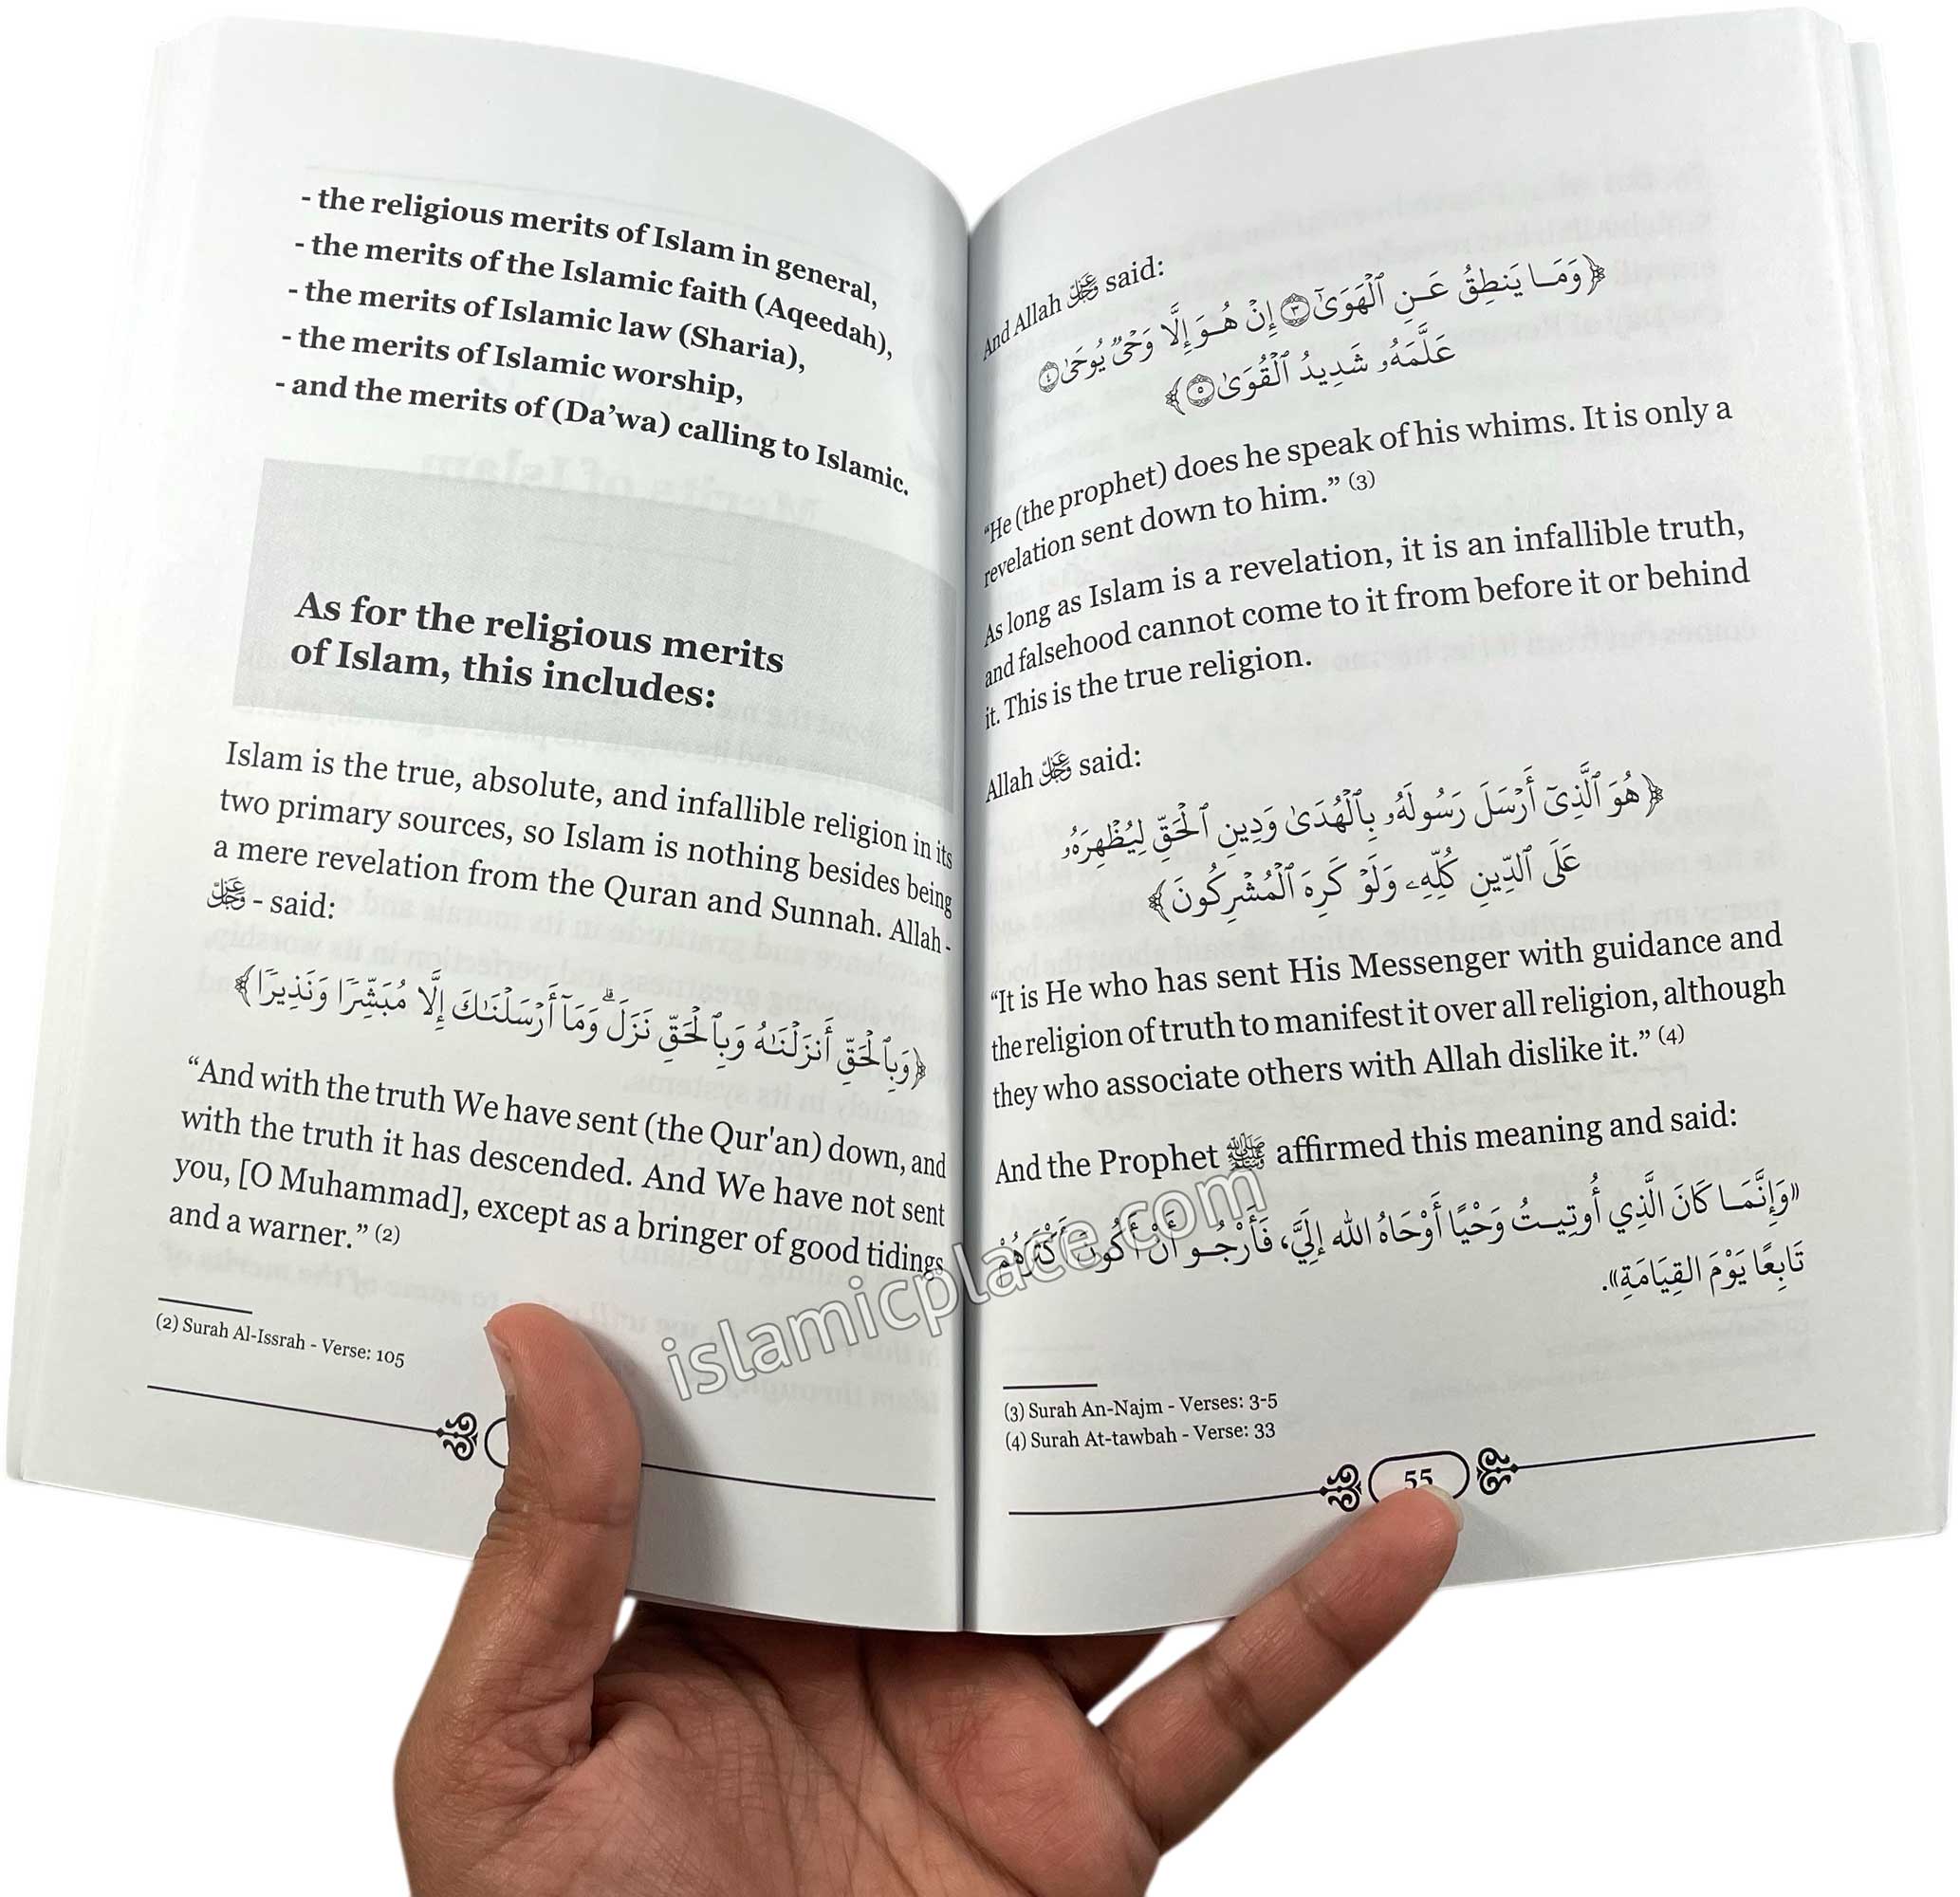 - the religious merits of Islam in general,
- the merits of the Islamic faith (Aqeedah),
- the merits of Islamic law (Sharia),
- the merits of Islamic worship,
- and the merits of (Da’wa) calling to Islamic.
As for the religious merits
of Islam, this includes:
Islam is the true, absolute, and infallible religion in its
two primary sources, so Islam is nothing besides being
a mere revelation from the Quran and Sunnah. Allah -
عَزَّوَجَلَّ - said:
﴿وَبِٱلۡحَقِّ أَنزَلۡنَٰهُ وَبِٱلۡحَقِّ نَزَلَۗ وَمَآ أَرۡسَلۡنَٰكَ إِلَّا مُبَشِّرٗا وَنَذِيرٗا﴾
“And with the truth We have sent (the Qur'an) down, and
with the truth it has descended. And We have not sent
you, [O Muhammad], except as a bringer of good tidings
and a warner.” (2)
(2) Surah Al-Issrah - Verse: 105
And Allah عَزَّوَجَلَّ said:
﴿وَمَا يَنطِقُ عَنِ ٱلۡهَوَىٰٓ ٣ إِنۡ هُوَ إِلَّا وَحۡيٞ يُوحَىٰ ٤
عَلَّمَهُۥ شَدِيدُ ٱلۡقُوَىٰ ٥﴾
“He (the prophet) does he speak of his whims. It is only a
revelation sent down to him.” (3)
As long as Islam is a revelation, it is an infallible truth,
and falsehood cannot come to it from before it or behind
it. This is the true religion.
Allah عَزَّوَجَلَّ said:
﴿هُوَ ٱلَّذِيٓ أَرۡسَلَ رَسُولَهُۥ بِٱلۡهُدَىٰ وَدِينِ ٱلۡحَقِّ لِيُظۡهِرَهُۥ
عَلَى ٱلدِّينِ كُلِّهِۦ وَلَوۡ كَرِهَ ٱلۡمُشۡرِكُونَ﴾
“It is He who has sent His Messenger with guidance and
the religion of truth to manifest it over all religion, although
they who associate others with Allah dislike it.” (4)
And the Prophet ﷺ affirmed this meaning and said:
«وَإِنَّمَا كَانَ الَّذِي أُوتِيتُ وَحْيًا أَوْحَاهُ الله إِلَيَّ، فَأَرْجُو أَنْ أَكُونَ أَكْثَرَهُمْ
تَابِعًا يَوْمَ القِيَامَةِ».
(3) Surah An-Najm - Verses: 3-5
(4) Surah At-tawbah - Verse: 33
55
islamicplace.com